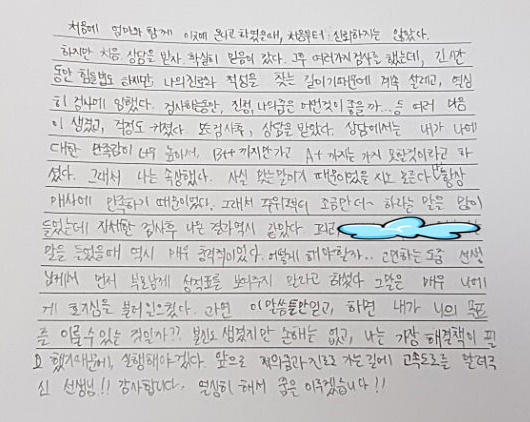 처음에 엄마와 함께 이곳에 온다고 하였을때, 처음부터 신뢰하지는 않았다.
하지만 처음 상담을 받자 확실히 믿음이 갔다. 그후 여러가지 검사를 했는데, 긴 시간
동안 힘들법도 하지만, 나의 진로와 적성을 찾는 길이기 때문에 계속 설레고, 열심
히 검사에 임했다. 검사하는동안, 진정, 나의 꿈은 어떤것이 좋을까... 등 여러 마음
이 생겼고, 걱정도 커졌다. 또 검사후, 상담을 받았다. 상담에서는 내가 나에
대한 만족감이 너무 높아서, B++ 까지만 가고 A+ 까지는 가지 못한것이라고 하
셨다. 그래서 나는 속상했다. 사실 맞는말이기 때문이었을 지도 모른다. 항상
매사에 만족하기 때문이었다. 그래서 주위에서 조금만 더~ 하라는 말을 많이
들었는데 자세한 검사후 나온 결과역시 같았다.
말을 들었을때 역시 매우 충격적이었다. 어떻게 해야할까.. 고민하는 도중 선생
님께서 먼저 부모님께 성적표를 보여주지 말라고 하셨다 그말은 매우 나에
게 호기심을 불러일으켰다. 과연 이 말씀들만 믿고, 하면 내가 나의 목표
를 이룰수 있는 것일까?? 불신도 생겼지만 손해는 없고, 나는 가장 해결책이 필
요 했기때문에, 실행해야겠다. 앞으로 저의 꿈과 진로로 가는 길에 고속도로를 알려주
신 선생님!! 감사합니다. 열심히 해서 꿈을 이루겠습니다!!